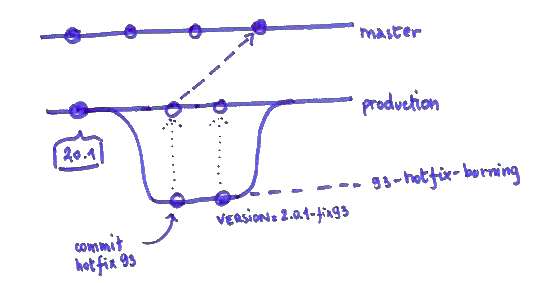 master
production
2.0.1
93-hotfix-burning
VERSION=2.0.1-fix93
commit
hotfix 93